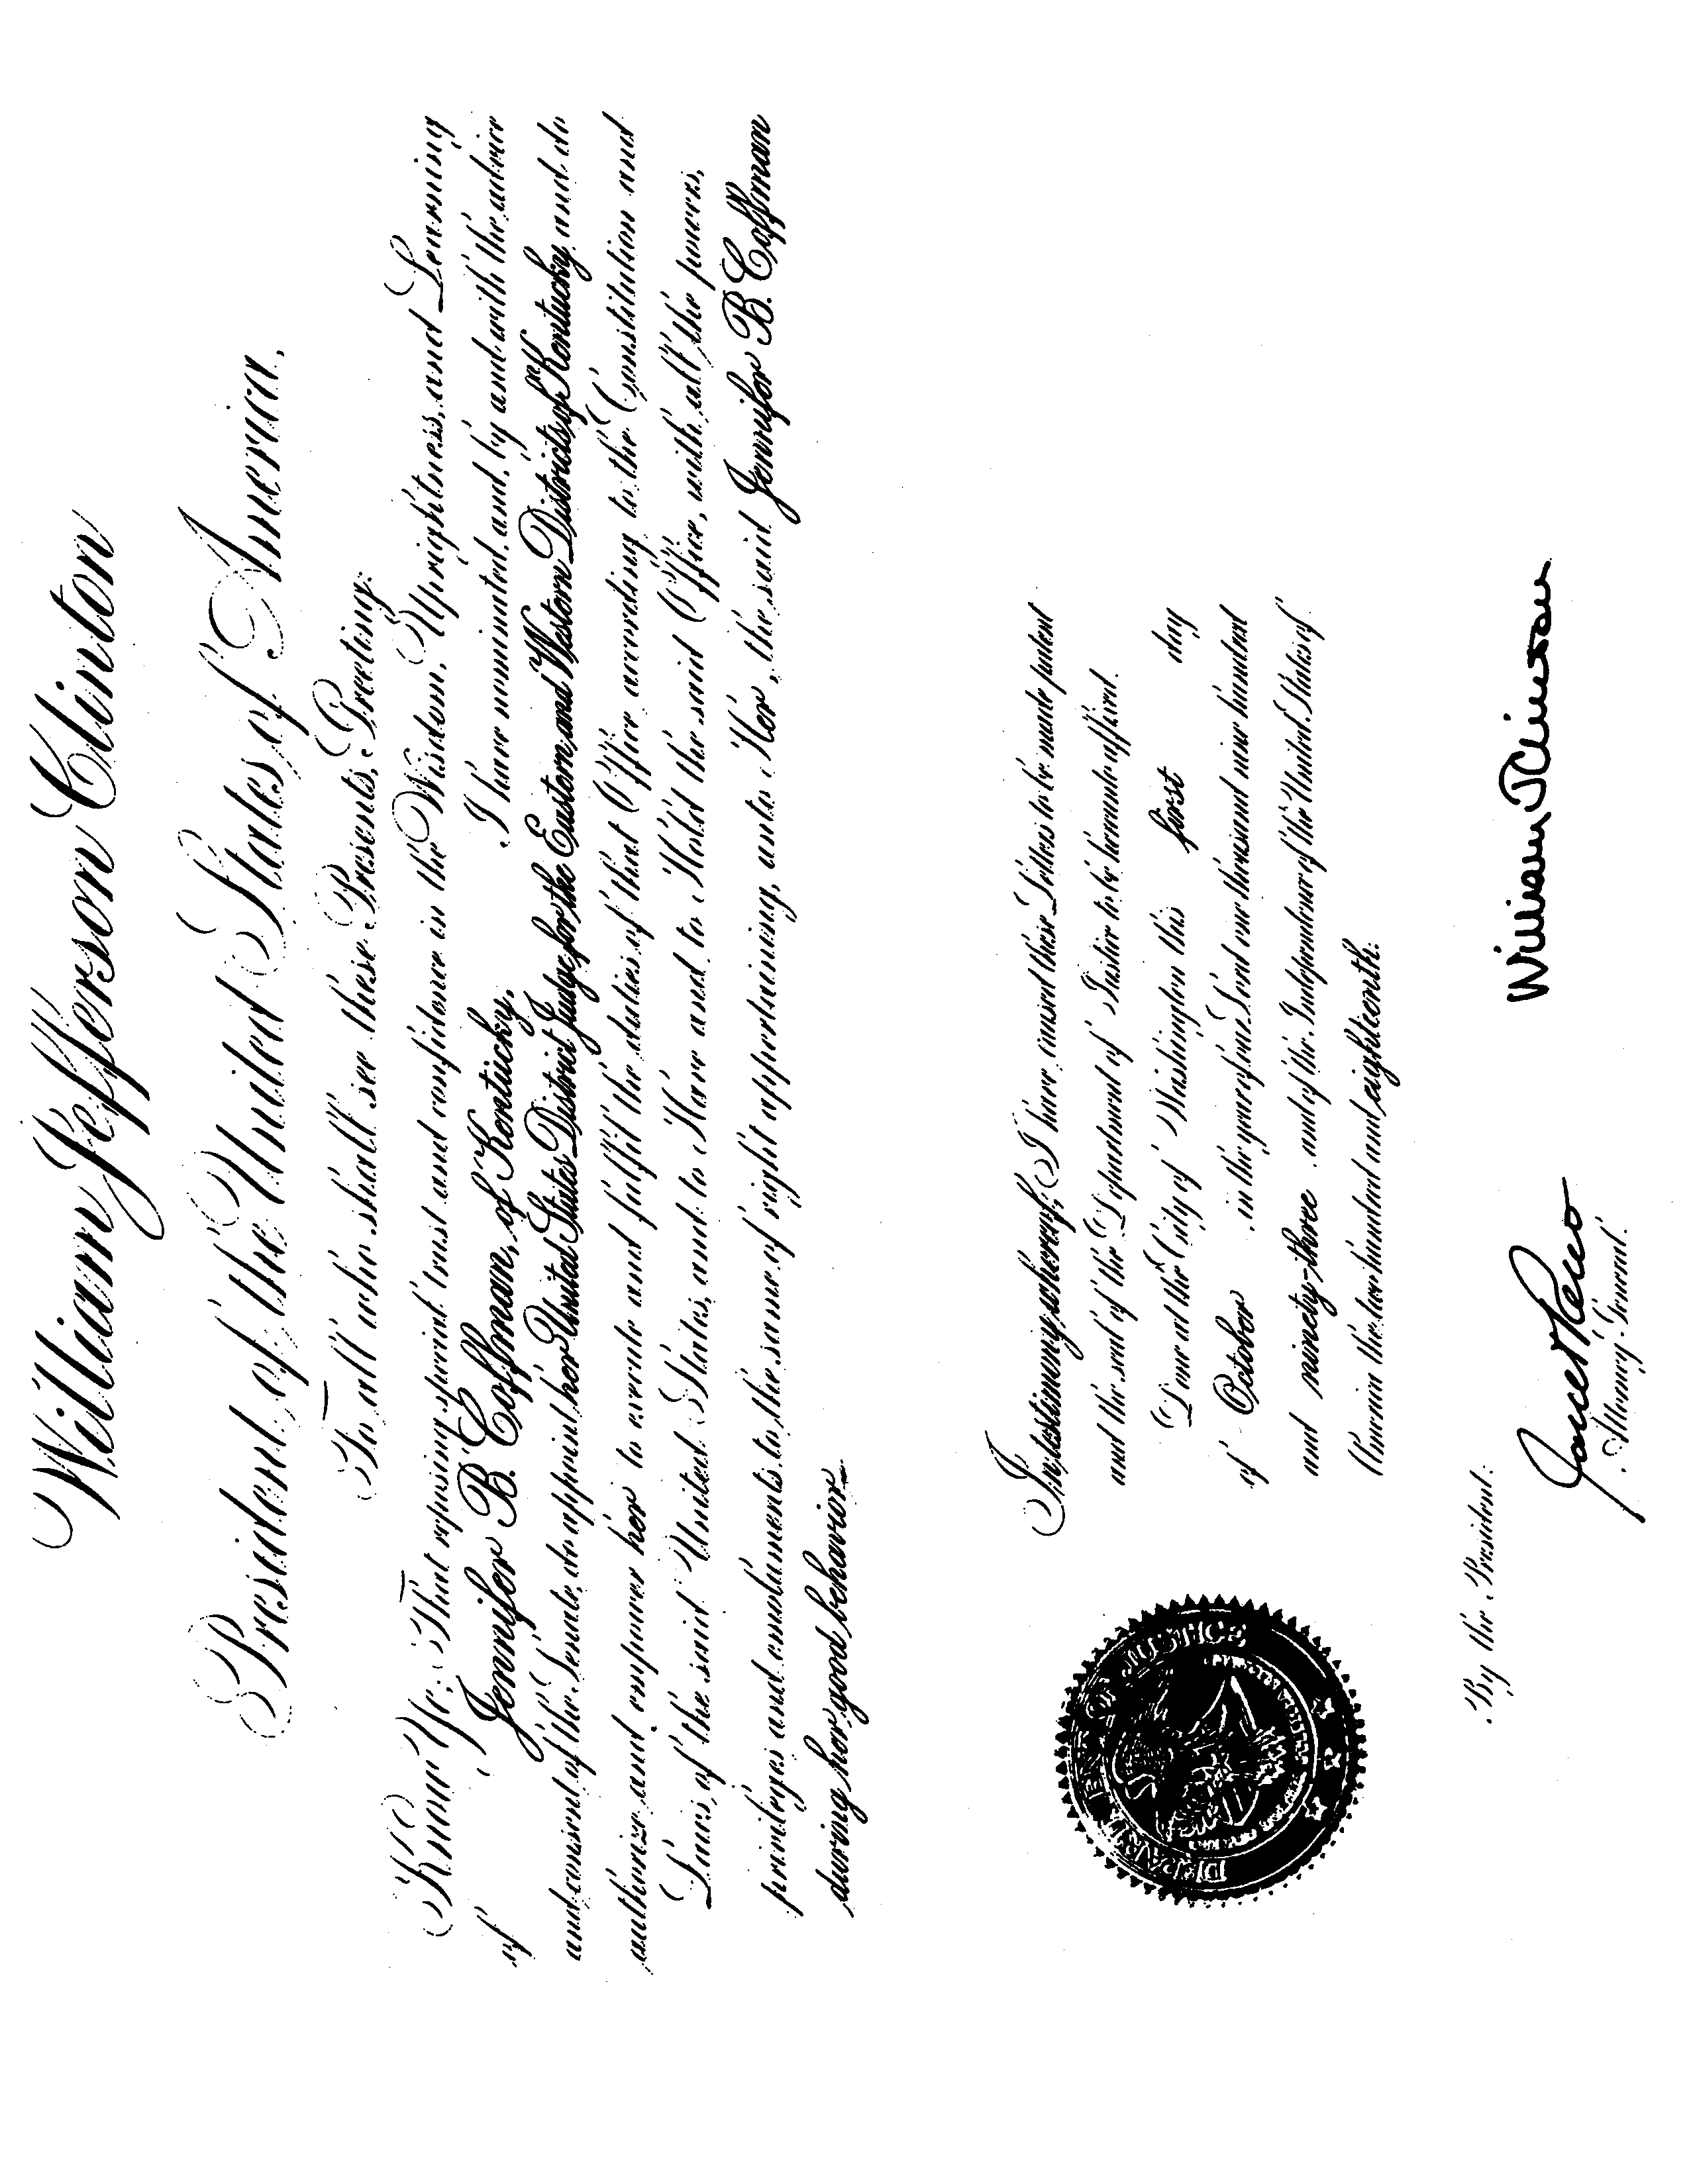 William Jefferson Clinton
President of the United States of America,
To all who shall see these Presents, Greeting:
Know Ye; That reposing special trust and confidence in the Wisdom, Uprightness, and Learning
of Jennifer B. Coffman, of Kentucky, I have nominated, and, by and with the advice
and consent of the Senate, do appoint her United States District Judge for the Eastern and Western Districts of Kentucky, and do
authorize and empower her to execute and fulfil the duties of that Office according to the Constitution and
Laws of the said United States, and to Have and to Hold the said Office, with all the powers,
privileges and emoluments to the same of right appertaining, unto Her, the said Jennifer B. Coffman
during her good behavior.
In testimony whereof, I have caused these Letters to be made patent
and the seal of the Department of Justice to be hereunto affixed.
Done at the City of Washington this first day
of October in the year of our Lord one thousand nine hundred
and ninety-three and of the Independence of the United States of
America the two hundred and eighteenth.
DEPARTMENT OF JUSTICE
William J Clinton
By the President:
Janet Reno
Attorney General.